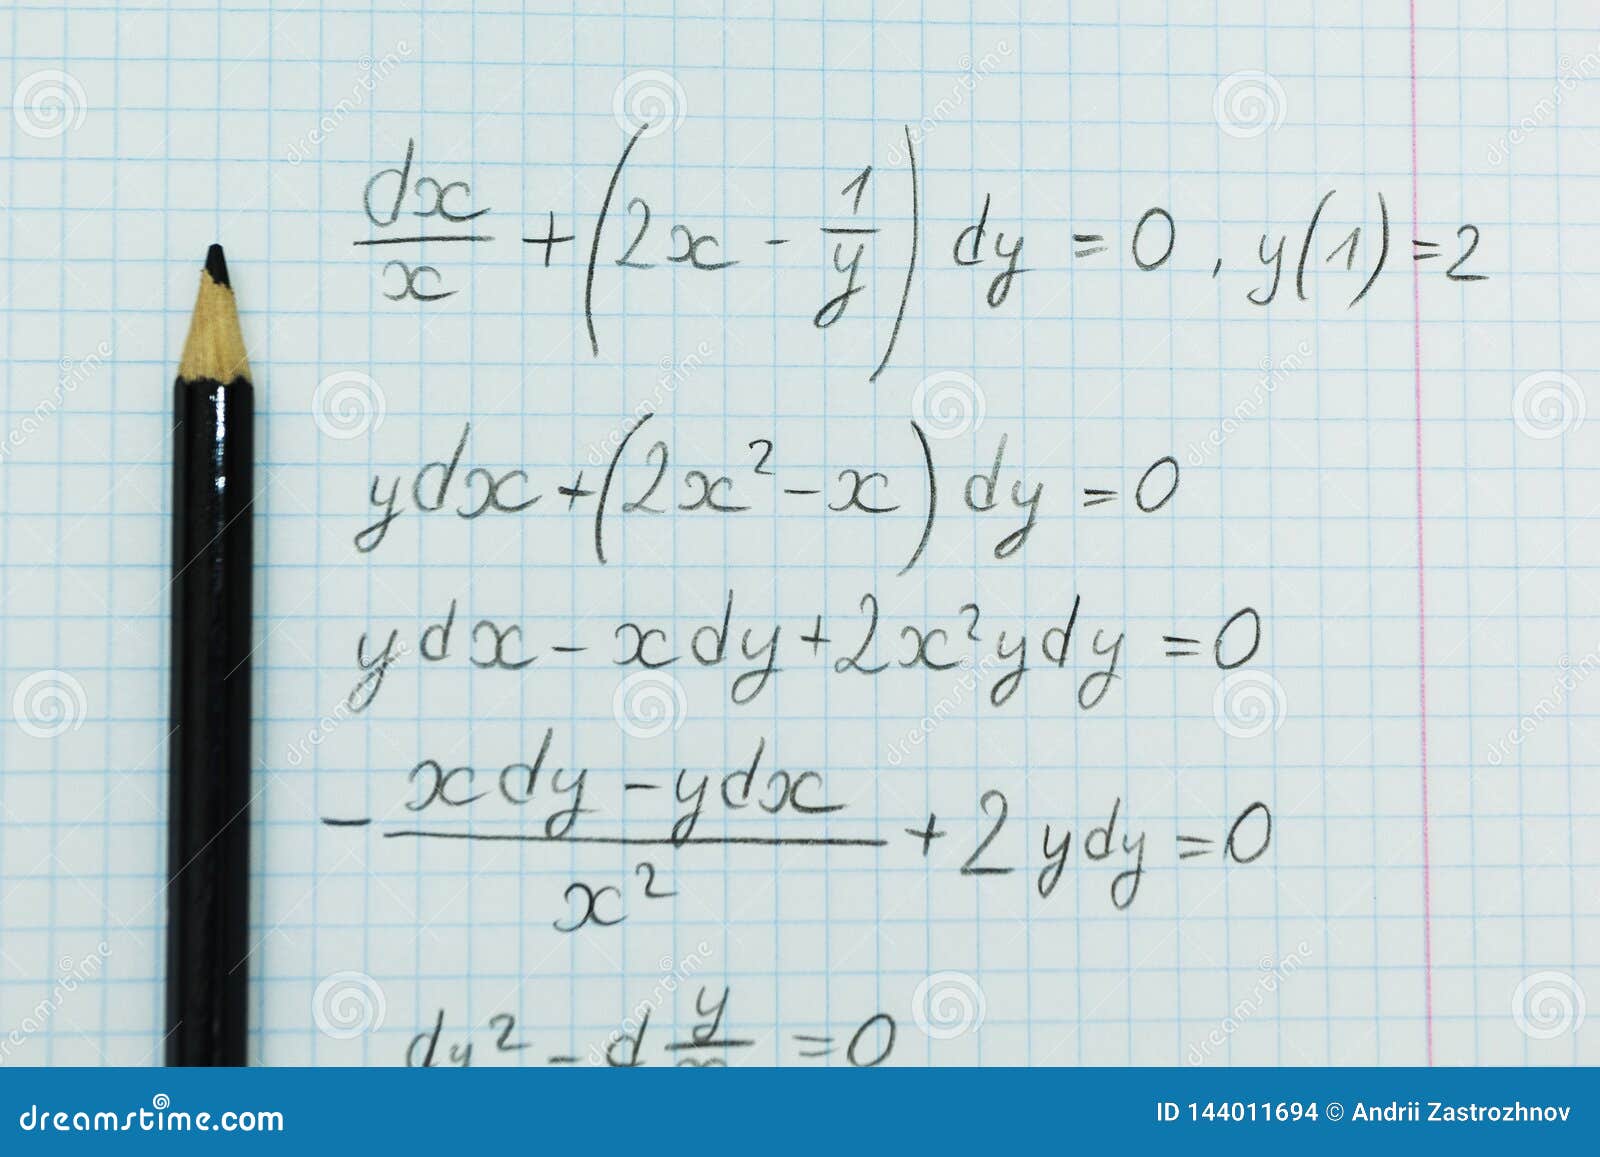 dx/x + (2x - 1/y) dy = 0, y(1) = 2
ydx + (2x² - x) dy = 0
ydx - xdy + 2x²ydy = 0
- (xdy - ydx)/x² + 2ydy = 0
dy² - d y/x = 0
dreamstime.com
ID 144011694 © Andrii Zastrozhnov